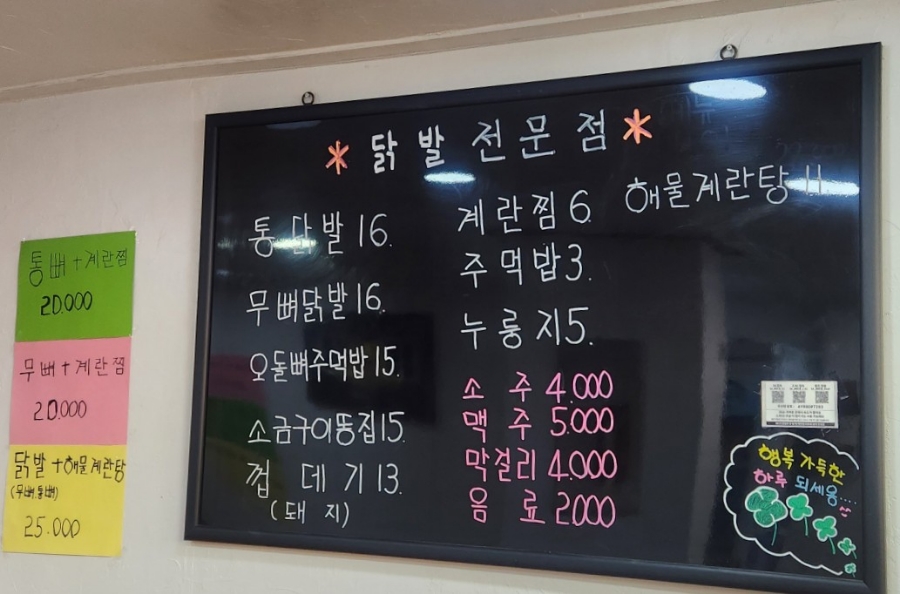 * 닭발전문점 *
통닭발 16.
무뼈닭발 16.
오돌뼈주먹밥 15.
소금구이똥집 15.
껍데기 13.
(돼지)
계란찜 6.
주먹밥 3.
누룽지 5.
소주 4.000
맥주 5.000
막걸리 4.000
음료 2.000
해물계란탕 11
행복 가득한
하루 되세용....
통뼈+계란찜
20.000
무뼈+계란찜
20.000
닭발+해물계란탕
(무뼈,통뼈)
25.000